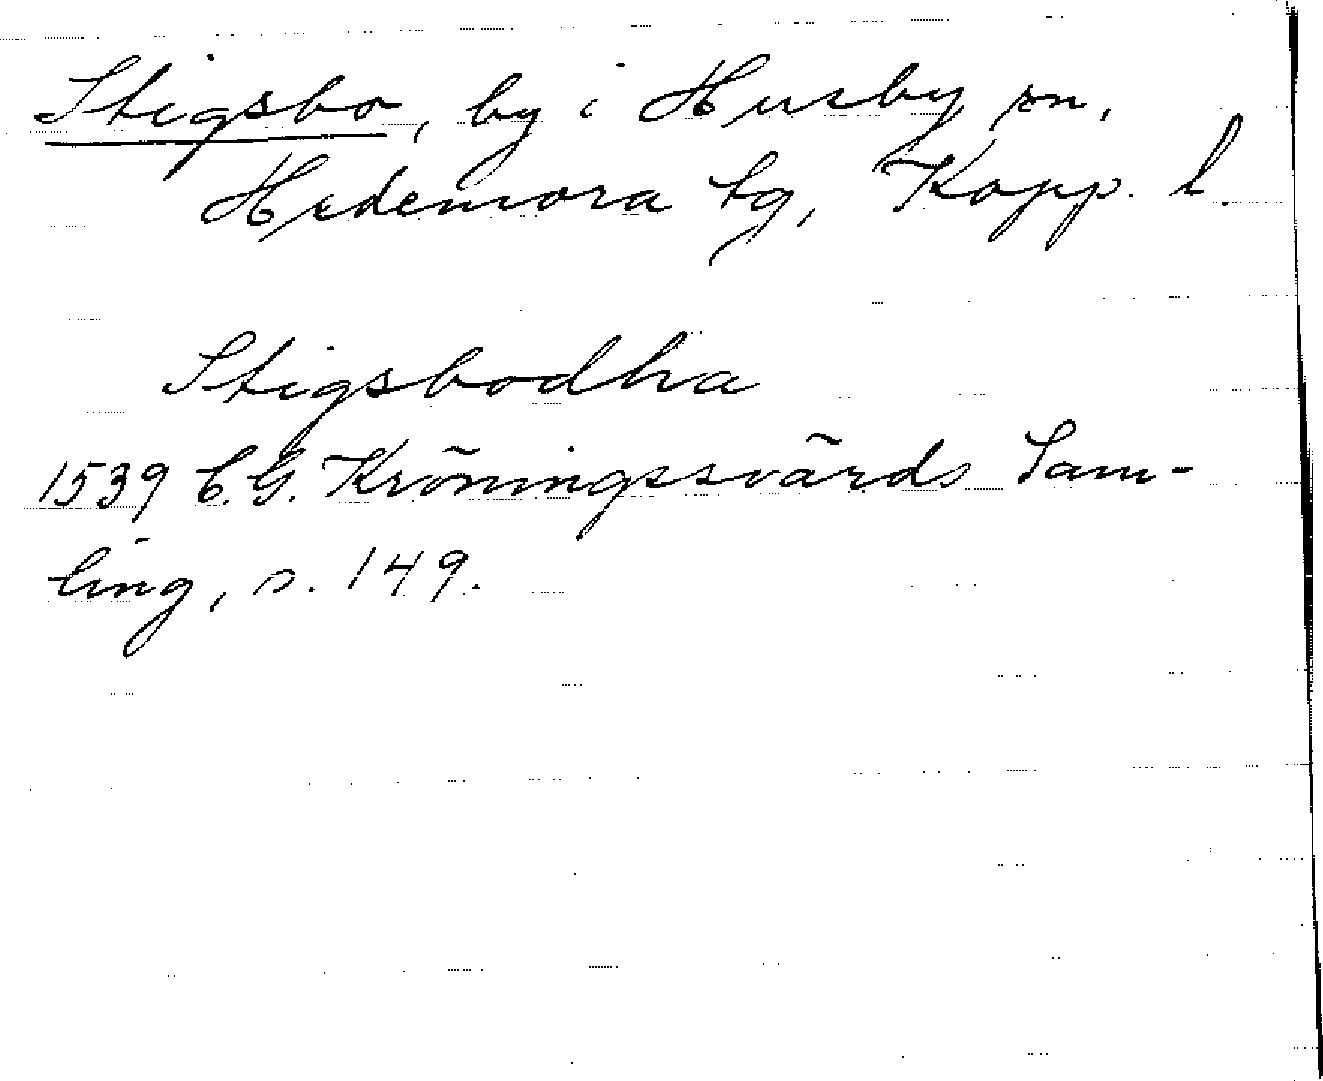 Stigsbo, by i Husby sn,
Hedemora tg, Kopp. l.
Stigsbodha
1539 C.G. Kröningssvärds Sam-
ling, s. 149.